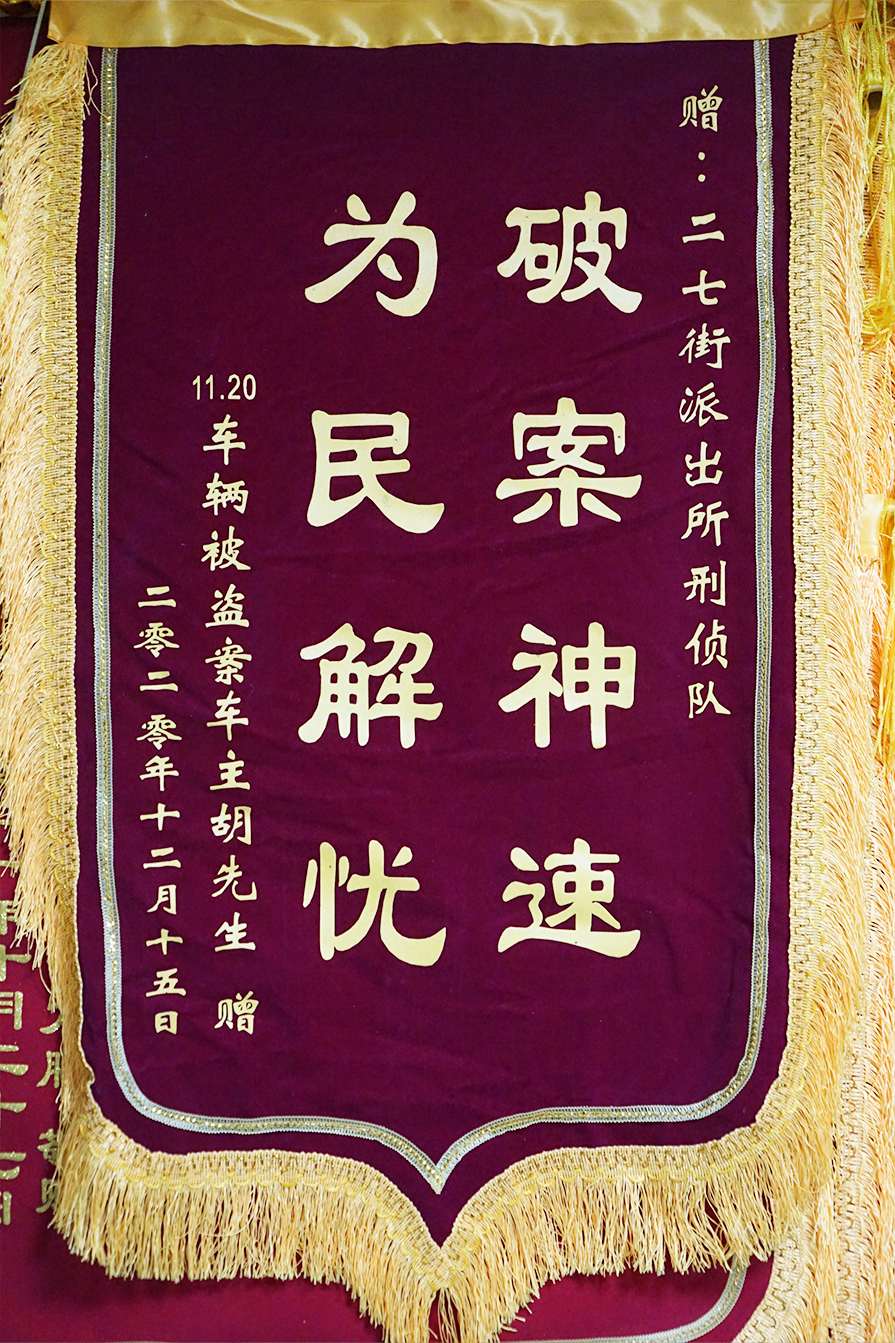 赠：二七街派出所刑侦队
破案神速
为民解忧
11.20
车辆被盗案车主胡先生 赠
二零二零年十二月十五日